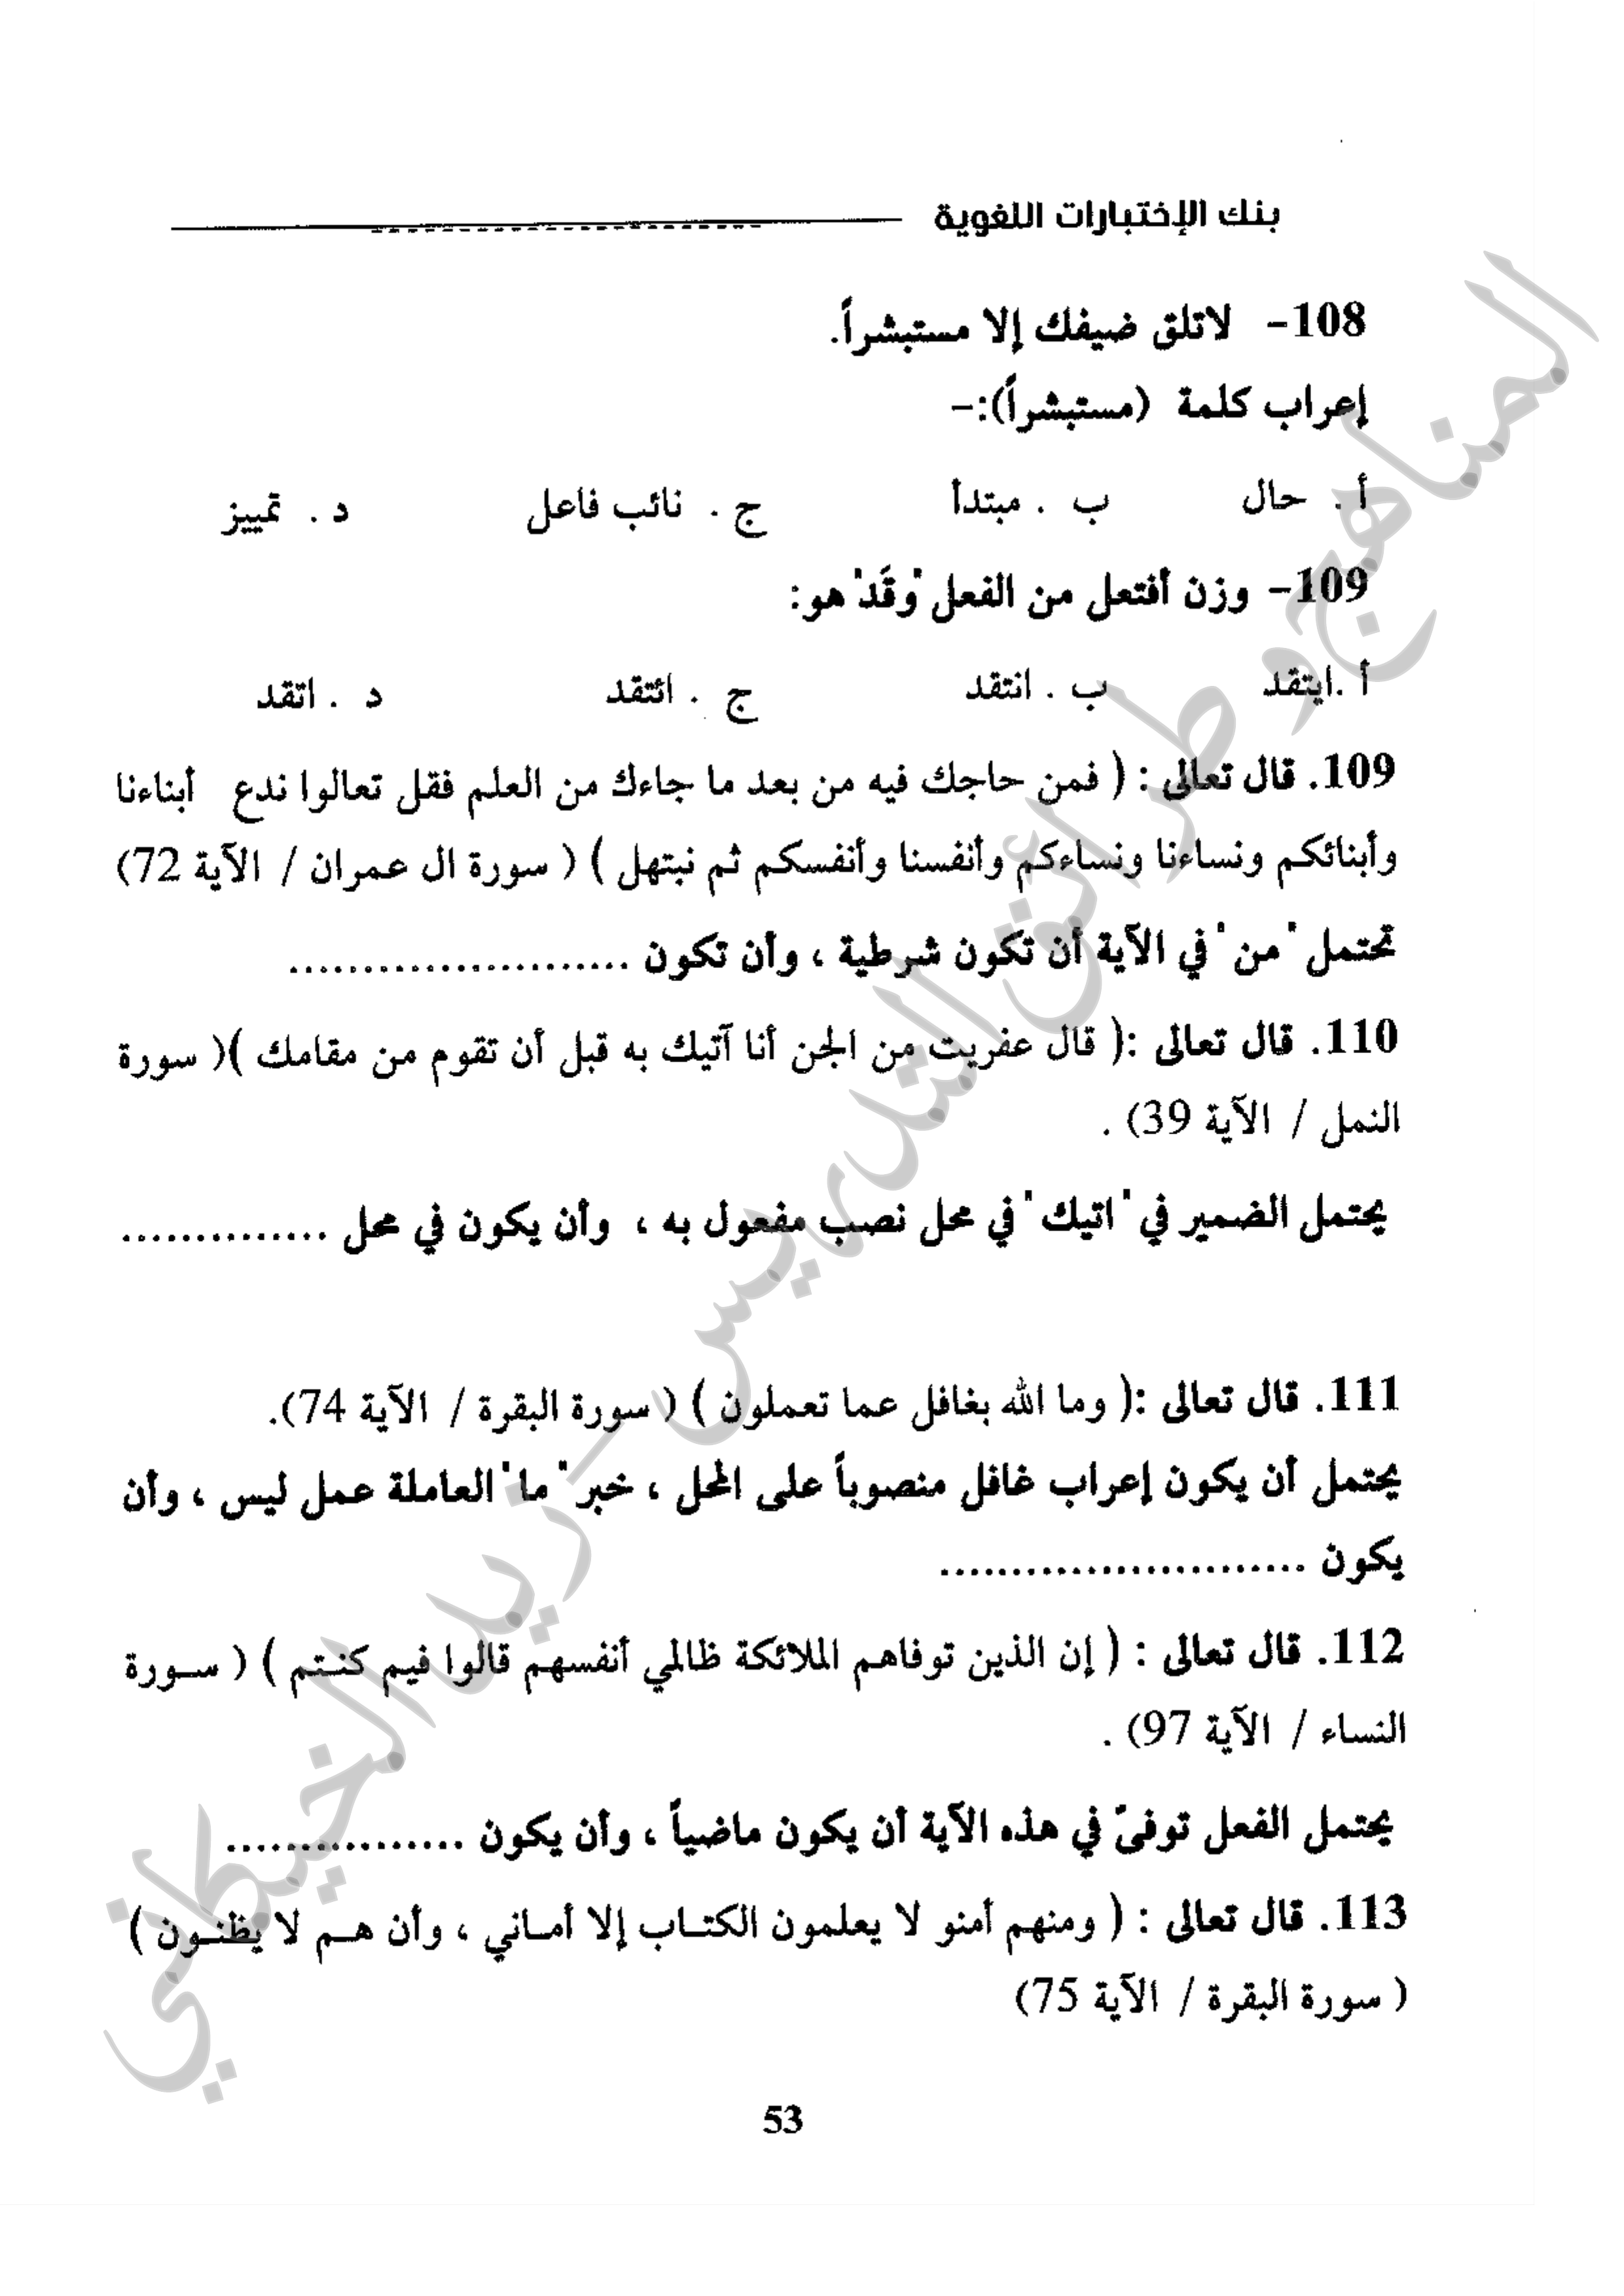 بنك الإختبارات اللغوية
108- لاتلق ضيفك إلا مستبشراً.
إعراب كلمة (مستبشراً):-
أ . حال ب . مبتدأ ج . نائب فاعل د . تمييز
109- وزن أفتعل من الفعل "وقَد" هو:
أ .ايتقد ب . انتقد ج . ائتقد د . اتقد
109. قال تعالى : ( فمن حاجك فيه من بعد ما جاءك من العلم فقل تعالوا ندع أبناءنا
وأبنائكم ونساءنا ونساءكم وأنفسنا وأنفسكم ثم نبتهل ) ( سورة ال عمران / الآية 72)
تحتمل "من" في الآية أن تكون شرطية ، وأن تكون .......................
110. قال تعالى :( قال عفريت من الجن أنا آتيك به قبل أن تقوم من مقامك )( سورة
النمل / الآية 39) .
يحتمل الضمير في "اتيك" في محل نصب مفعول به ، وأن يكون في محل ..............
111. قال تعالى :( وما الله بغافل عما تعملون ) ( سورة البقرة / الآية 74).
يحتمل أن يكون إعراب غافل منصوباً على المحل ، خبر "ما" العاملة عمل ليس ، وأن
يكون .........................
112. قال تعالى : ( إن الذين توفاهم الملائكة ظالمي أنفسهم قالوا فيم كنتم ) ( سورة
النساء / الآية 97) .
يحتمل الفعل توفىّ في هذه الآية أن يكون ماضياً ، وأن يكون ................
113. قال تعالى : ( ومنهم أمنو لا يعلمون الكتاب إلا أماني ، وأن هم لا يظنون )
( سورة البقرة / الآية 75)
53
المناهج وطرائق التدريس - زيد الخيكاني